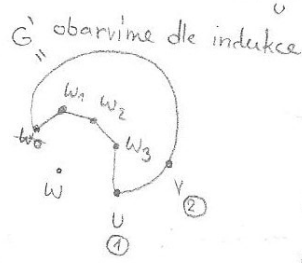 U
G' obarvíme dle indukce
w₁
w₂
w₃
w
v
②
U
①